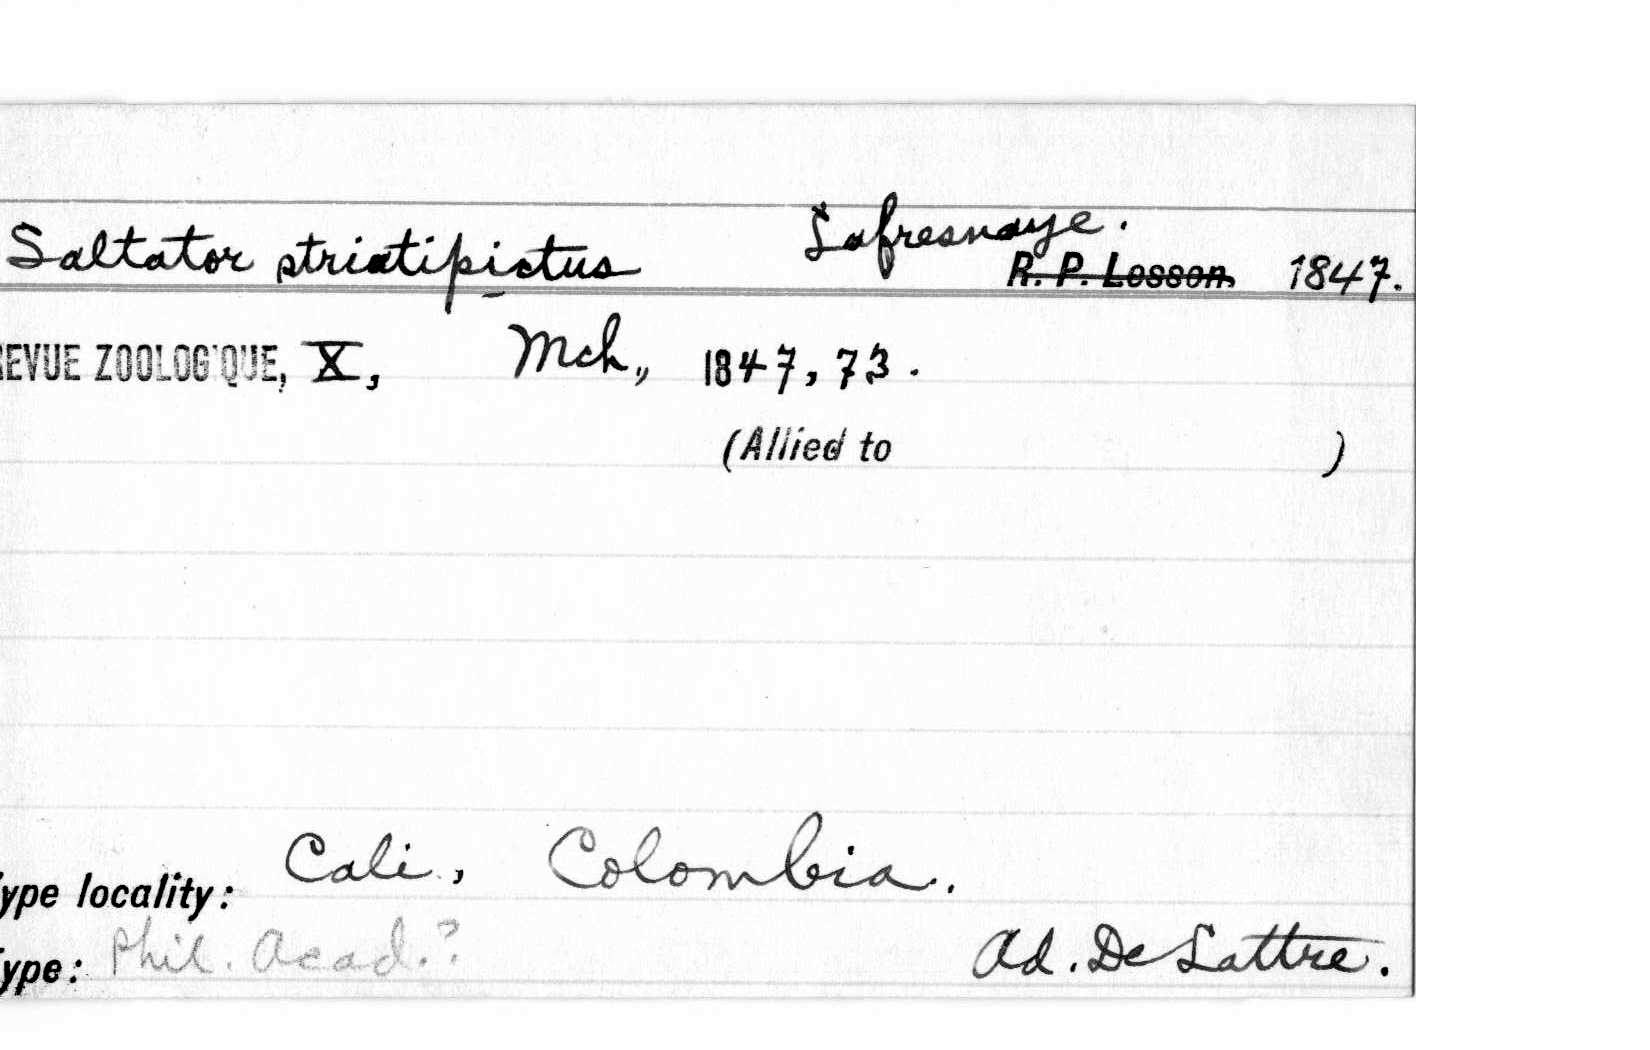 Saltator striatipictus Lafresnaye.
R. P. Lesson 1847.
REVUE ZOOLOGIQUE, X, Mch., 1847, 73.
(Allied to )
ype locality: Cali, Colombia.
ype: Phil. Acad.? Ad. De Lattre.